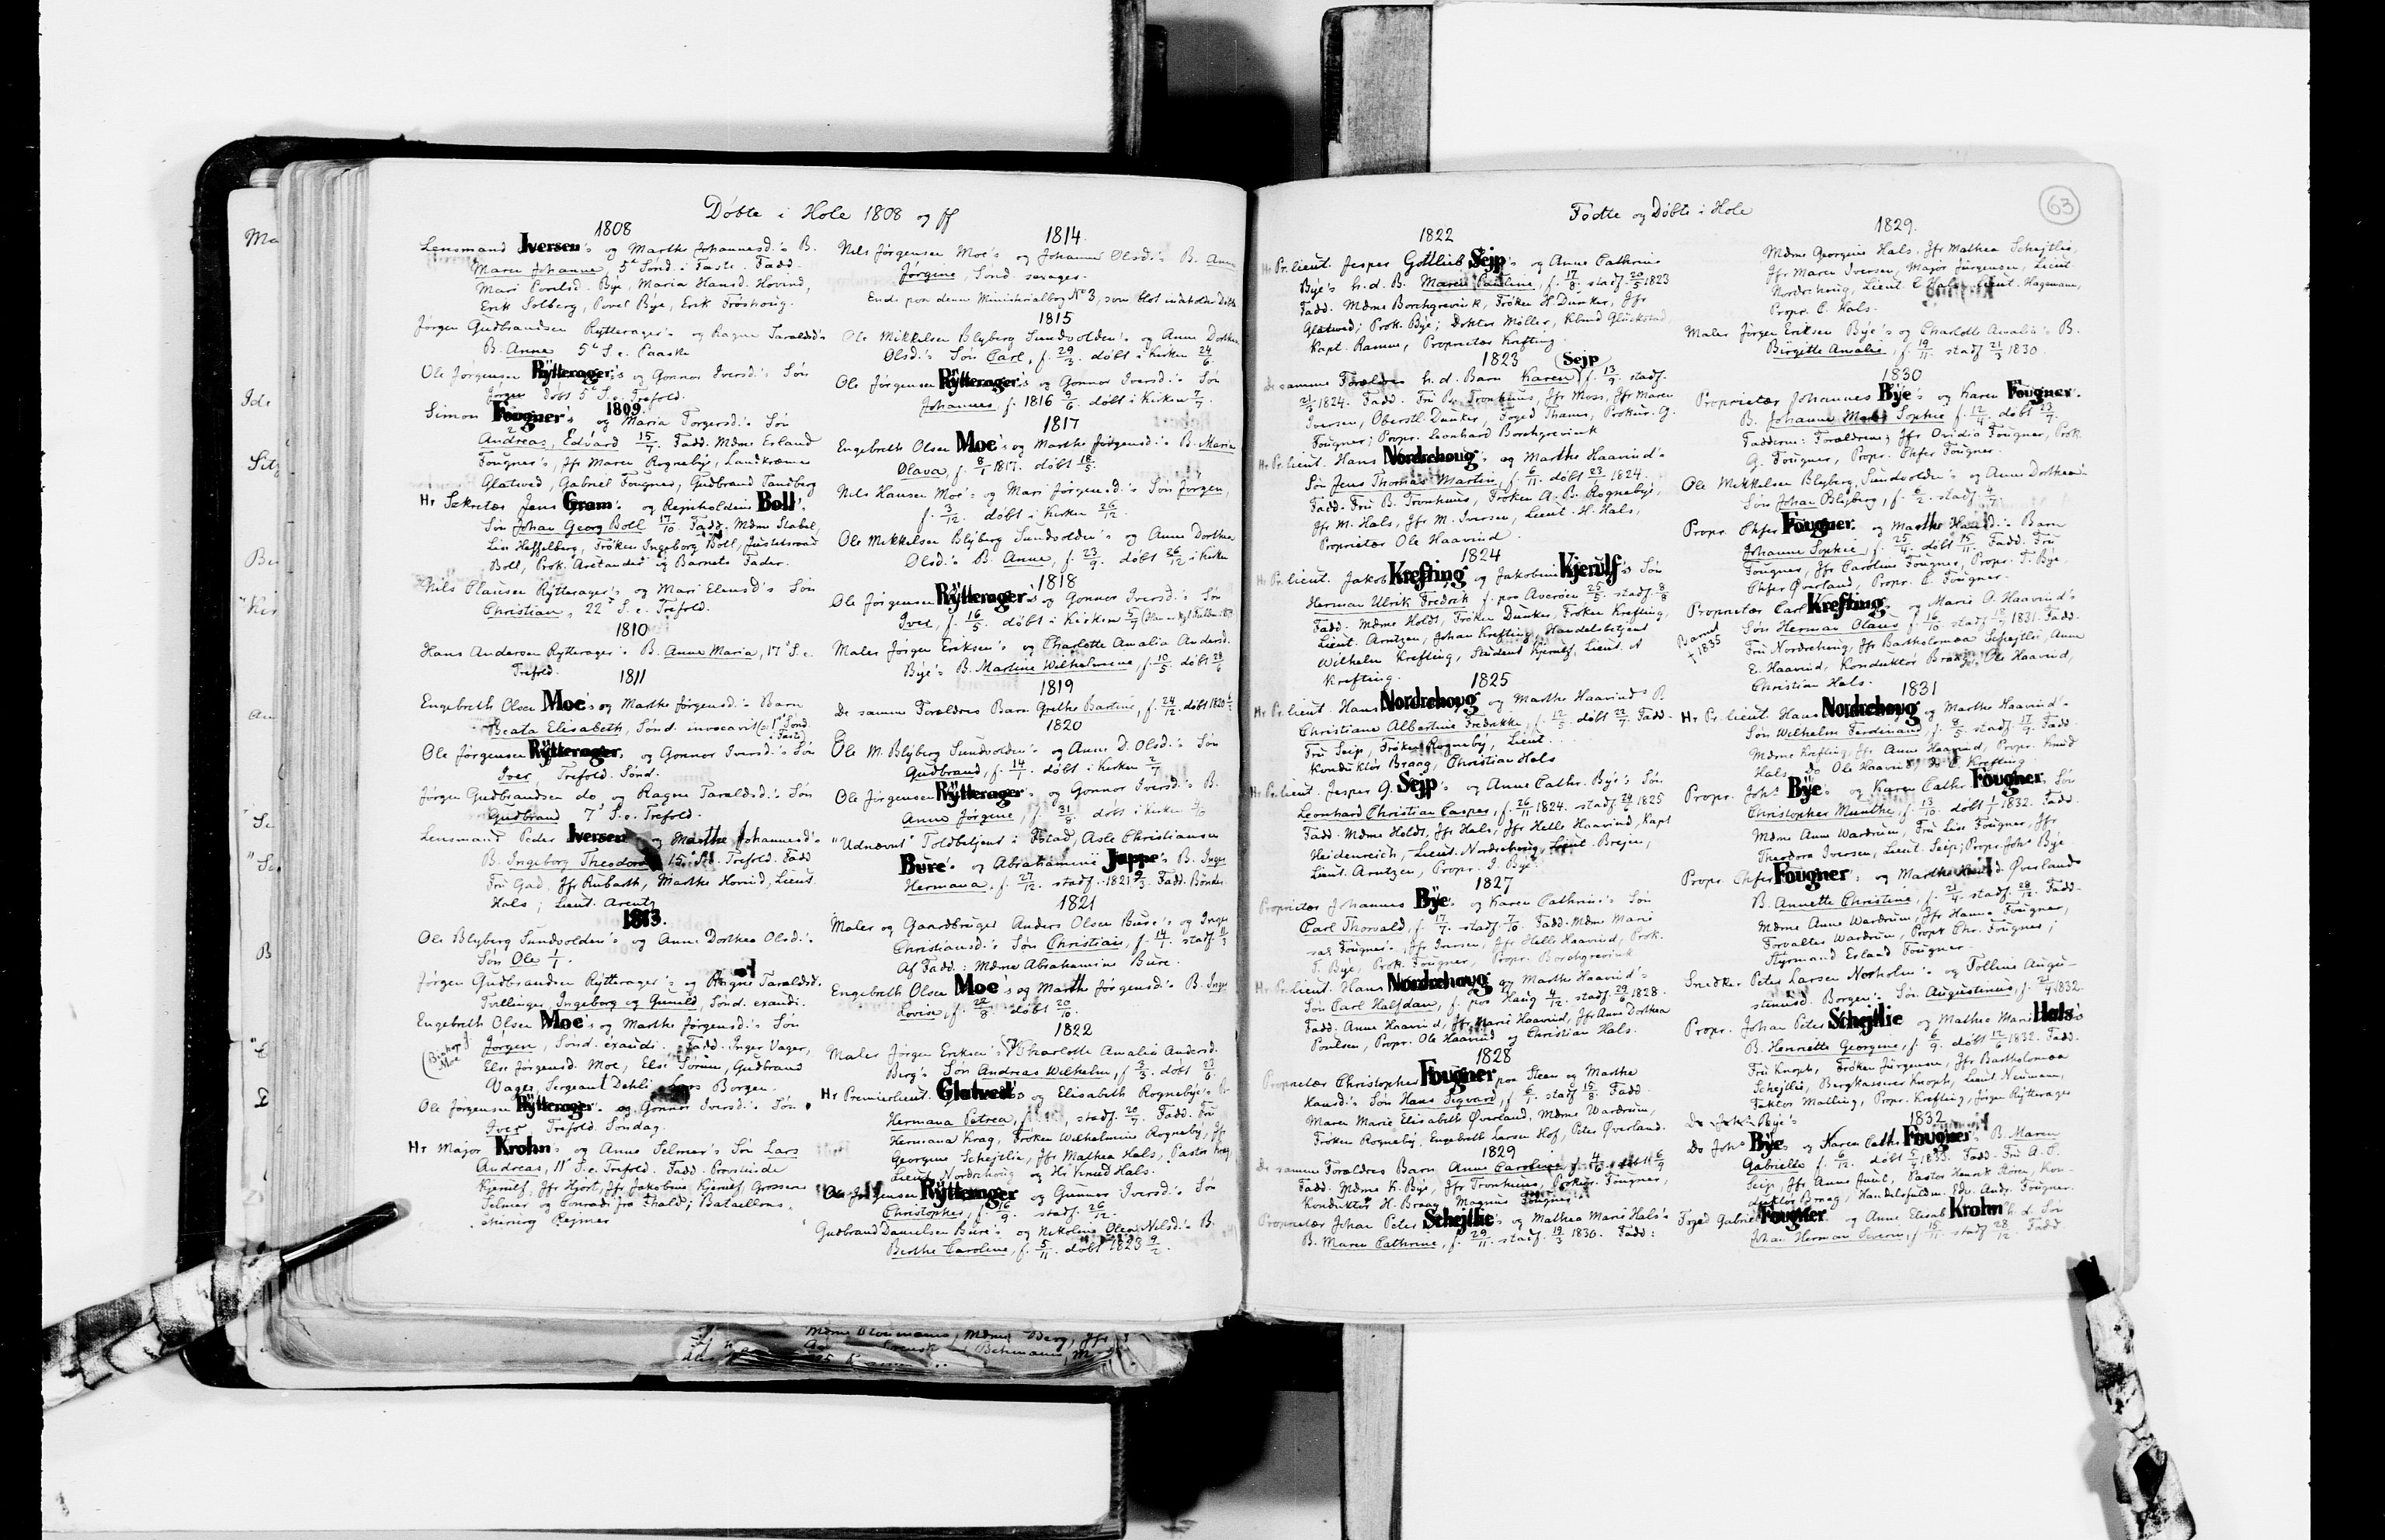 Døbte i Hole 1808 og ff
1808
Lensmand Iversen's og Marthe Johannesd.'s B.
Maren Johanne, 5te Sønd. i Faste. Fadd.
Mari Povelsd. Bye, Maria Hansd. Hovind,
Erik Solberg, Povel Bye, Erik Frøshoug.
Jørgen Gudbrandsen Rytterager's og Ragne Taraldsd's
B. Anne 5te S. e. Paaske
Ole Jørgensen Rytterager's og Gonnor Iversd.'s Søn
Jørgen døbt 5te S. e. Trefold.
1809.
Simon Fougner's og Maria Torgersd.'s Søn
Andreas, Edvard 15/7 Fadd. Mdme Erland
Fougner's, Jfr Maren Rognebye, Landkræmer
Glatved, Gabriel Fougner, Gudbrand Sandberg
Hr Sekretær Jens Gram's og Rejnholdine Boll's
Søn Johan Georg Boll 17/10. Fadd. Mdme Stabel,
Lise Hesselberg, Frøken Ingeborg Boll, Justitsraad
Boll, Prok. Arctander og Barnets Fader.
Nils Clausen Rytterager's og Mari Elensd's Søn
Christian, 22de S. e. Trefold.
1810
Hans Andersen Rytterager's B. Anne Maria, 17de S. e.
Trefold.
1811
Engebreth Olsen Moe's og Marthe Jørgensd.'s Barn
Beata Elisabeth, Sønd. invocavit (o: 1ste Sønd.
i Faste)
Ole Jørgensen Rytterager's og Gonnor Iversd.'s Søn
Iver, Trefold. Sønd.
Jørgen Gudbrandsen do og Ragne Taraldsd.'s Søn
Gudbrand 7de S. e. Trefold.
Lensmand Peder Iversen og Marthe Johannesd's
B. Ingeborg Theodora 15 S. e. Trefold. Fadd
Fru Gad, Jfr Rubarth, Marthe Hovind, Lieut.
Hals; Lieut. Arentz
1813.
Ole Blyberg Sundvolden's og Anne Dorthea Olsd.'s
Søn Ole 1/1.
Jørgen Gudbrandsen Rytterager's og Ragne Taraldsd.
Tvillinger Ingeborg og Gunild, Sønd. exaudi.
Engebreth Olsen Moe's og Marthe Jørgensd.'s Søn
(Biskop J. Moe)
Jørgen, Sønd. exaudi. Fadd. Inger Vager,
Else Jørgensd. Moe, Else Sørum, Gudbrand
Vager, Sergeant Dehli Borgen.
Ole Jørgensen Rytterager's og Gonnor Iversd.'s Søn
Iver, Trefold. Søndag.
Hr Major Krohn's og Anne Selmer's Søn Lars
Andreas, 11te S. e. Trefold. Fadd. Provstinde
Kjerulf, Jfr Hjort, Jfr Jakobine Kjerulf, Grosserer
Selmer og Conradi fra Thald; Bataillons-
chirurg Rejner
1814.
Nils Jørgensen Moe's og Johanne Olsd.'s B. Anne
Jørgine, Sønd. sexages.
Ende paa denne Ministerialbog No 3, som blot indeholder Døbte
1815
Ole Mikkelsen Blyberg Sundvolden's og Anne Dorthea
Olsd.'s Søn Carl, f. 29/3. døbt i Kirken 24/6.
Ole Jørgensen Rytterager's og Gonnor Iversd.'s Søn
Johannes f. 1816 9/6 døbt i Kirken 7/7
1817
Engebreth Olsen Moe's og Marthe Jørgensd.'s B. Maria
Olava, f. 8/1 1817. døbt 18/5.
Nils Hansen Moe's og Mari Jørgensd.'s Søn Jørgen,
f. 3/12. døbt i Kirken 26/12
Ole Mikkelsen Blyberg Sundvolden's og Anne Dorthea
Olsd.'s B. Anne, f. 23/9. døbt 26/12 i Kirken
1818
Ole Jørgensen Rytterager's og Gonnor Iversd.'s Søn
Iver, f. 16/5. døbt i Kirken 5/7
Maler Jørgen Eriksen's og Charlotte Amalia Andersd.
Bye's B. Martine Wilhelmine f. 10/5 døbt 28/6
1819
De samme Forældres Barn Grethe Bartine, f. 24/12. døbt 1820
1820
Ole M. Blyberg Sundvolden's og Anne D. Olsd.'s Søn
Gudbrand, f. 14/1. døbt i Kirken 2/7
Ole Jørgensen Rytterager's og Gonnor Iversd.'s B.
Anne Jørgine, f. 31/8. døbt i Kirken
"Udnævnt" Toldbetjent i Ibstad, Asle Christiansen
Bure's og Abrahamine Juppe's B. Inger
Hermana, f. 27/12. stadf. 1821 9/3. Fadd. Bønder.
1821
Maler og Gaardbruger Anders Olsen Bure's og Inger
Christiansd.'s Søn Christian, f. 14/1. stadf. 11/3
Af Fadd.: Mdme Abrahamine Bure.
Engebreth Olsen Moe's og Marthe Jørgensd.'s B. Inger
Lovise, f. 28/8 døbt 20/10.
1822
Maler Jørgen Eriksen's og Charlotte Amalia Andersd.
Berg's Søn Andreas Wilhelm, f. 3/3. døbt 23/6.
Hr Premierlieut. Glatved's og Elisabeth Rognebye's B.
Hermana Petrea, f. , stadf. 20/7. Fadd. Fru
Hermana Krag, Frøken Wilhelmine Rogneby, Jfr
Georgine Schejtlie, Jfr Mathea Hals, Pastor Krag,
Lieut. Nordrehoug og Hr Knud Hals.
Ole Jørgensen Rytterager og Gunnor Iversd.'s Søn
Christopher, f. 16/9. stadf. 26/12.
Gudbrand Danielsen Bure's og Nikoline Olea Nilsd.'s B.
Berthe Caroline, f. 5/11. døbt 1823 9/2.
63
Fødte og Døbte i Hole
1822
Hr Pr.lieut. Jesper Gottlieb Sejp's og Anne Cathrine
Bye's h. d. B. Maren Pauline, f. 17/8. stadf. 20/5 1823
Fadd. Mdme Borchgrevink, Frøken H. Dunker, Jfr
Glatved; Prok. Bye; Doktor Møller, Kbmd Glückstad,
Kapt. Ramm, Proprietær Krefting
1823
Sejp
De samme Forældres h. d. Barn Karen f. 13/9. stadf.
21/3 1824. Fadd. Fru B. Tronhuus, Jfr Moss, Jfr Maren
Iversen, Oberstl. Dunker, Foged Thams, Prokur. G.
Fougner; Propr. Leonhard Borchgrevink
Hr Pr.lieut. Hans Nordrehoug's og Marthe Haavind's
Søn Jens Thomas Martin, f. 6/11. døbt 23/ 1824.
Fadd. Fru B. Tronhuus, Frøken A. B. Rognebye,
Jfr M. Hals, Jfr M. Iversen, Lieut. H. Hals,
Proprietær Ole Haavind.
1824
Hr Pr.lieut. Jakob Krefting og Jakobine Kjerulf's Søn
Herman Ulrik Fredrik f. paa Averøen 25/5 stadf. 8/8
Fadd. Mdme Holdt, Frøken Dunker, Frøken Krefting,
Lieut. Arntzen, Johan Krefting, Handelsbetjent
Wilhelm Krefting, Student Kjerulf, Lieut. A
Krefting.
1825
Hr Pr.lieut. Hans Nordrehoug og Marthe Haavinds B
Christiane Albertine Fredrikke, f. 12/5. døbt 22/7. Fadd.
Fru Seip, Frøken Rognebye, Lieut. . . . .
Konduktør Braag, Christian Hals
Hr Pr.lieut. Jesper G. Sejp's og Anne Cathr. Bye's Søn
Leonhard Christian Casper, f. 26/11 1824. stadf. 24/6 1825
Fadd. Mdme Holdt, Jfr Hals, Jfr Helle Haavind, Kapt
Heidenreich, Lieut. Nordrehoug, Lieut. Brejen,
Lieut. Arntzen, Propr. J. Bye.
1827
Proprietær Johannes Bye's og Karen Cathrine's Søn
Carl Thorvald, f. 17/7. stadf. 7/10. Fadd. Mdme Mari
sal. Fougner's, Jfr Iversen, Jfr Helle Haavind, Prok.
T. Bye, Prok. Fougner, Propr. Borchgrevink
Hr Pr.lieut. Hans Nordrehoug og Marthe Haavind's
Søn Carl Halfdan, f. paa Haug 4/12. stadf. 29/6 1828.
Fadd. Anne Haavind, Jfr Marie Haavind, Jfr Anne Dorthea
Poulsen, Propr. Ole Haavind og Christian Hals.
1828
Proprietær Christopher Fougner paa Steen og Marthe
Hansd.'s Søn Hans Sigvard, f. 6/1. stadf. 15/8. Fadd.
Maren Marie Elisabeth Øverland, Mdme Wardrum,
Frøken Rognebye, Engebreth Larsen Hof, Peter Øverland.
1829
De samme Forældres Barn Anne Caroline, f. 4/ døbt 6/9
Fadd. Mdme K. Bye, Jfr Tronhuus, Prokur. Fougner,
Konduktør H. Braag, Magnus Fougner.
Proprietær Johan Peter Schejtlie's og Mathea Marie Hals's
B. Maren Cathrine, f. 29/11. stadf. 19/3 1830. Fadd:
1829.
Mdme Georgine Hals, Jfr Mathea Schejtlie,
Jfr Maren Iversen, Major Jürgensen, Lieut.
Nordrehoug, Lieut. C Hals, Lieut. Hagemann,
Propr. C. Hals.
Maler Jørgen Eriksen Bye's og Charlotte Amalia's B.
Birgitte Amalia, f. 19/11 stadf 21/3 1830.
1830
Proprietær Johannes Bye's og Karen Fougner's
B. Johanne Sophie f. 12/4. døbt 23/7.
Fadderne: Forældrene, Jfr Ovidia Fougner, Prok.
G. Fougner, Propr. Chfer Fougner.
Ole Mikkelsen Blyberg Sundvolden's og Anne Dorthea's
Søn Johan Blyberg, f. 6/2. stadf. 4/7.
Propr. Chfer Fougner og Marthe Hansd.'s Barn
Johanne Sophie f. 25/4. døbt 15/11. Fadd. Fru
Fougner, Jfr Caroline Fougner, Propr. T. Bye
Chfer Øverland, Propr. C. Fougner.
Proprietær Carl Krefting's og Marie O. Haavind's
Søn Herman Olaus f. 16/10 stadf. 1831. Fadd.
Barnet † 1835
Fru Nordrehoug, Jfr Bartholomea Schejtlie, Anne
E. Haavind, Konduktør Braag, Ole Haavind,
Christian Hals.
1831
Hr Pr.lieut Hans Nordrehoug og Marthe Haavind's
Søn Wilhelm Ferdinand, f. 8/5. stadf. 17/7. Fadd.
Mdme Krefting, Jfr Anne Haavind, Propr. Knud
Hals, Do Ole Haavind, Do C. Krefting.
Propr. Johs Bye's og Karen Cathr. Fougner's Søn
Christopher Munthe, f. 13/10 døbt 1/1 1832. Fadd.
Mdme Anne Wardrum, Fru Lise Fougner, Jfr
Theodora Iversen, Lieut. Seip, Propr. Johs Bye
Propr. Chfer Fougner's og Marthe Hansd. Øverlands
B. Annette Christine, f. 21/4. stadf. 28/12. Fadd.
Mdme Anne Wardrum, Jfr Hanna Fougner,
Forvalter Wardrum, Propr Chr. Fougner;
Styrmand Erland Fougner.
Snedker Peter Larsen Norholm's og Tolline Augu-
stinusd. Borgen's Søn Augustinus, f. 1832.
Propr. Johan Peter Schejtlie og Mathea Marie Hals's
B. Henriette Georgine, f. 6/9. døbt 12/6 1832. Fadd.
Fru Knoph, Frøken Jürgensen, Jfr Bartholomea
Schejtlie, Bergkasserer Knoph, Lieut. Neumann,
Faktor Malling, Propr. Krefting, Jørgen Rytterager
1832
Do Johs Bye's
Do Johs Bye og Karen Cath. Fougner's B. Maren
Gabrielle f. 6/12. døbt 5/4 1833. Fadd. Fru A. C.
Seip, Jfr Anne Juul, Pastor Henrik Støren, Kon-
duktør Braag, Handelsfuldm. Edv. Andr. Fougner.
Foged Gabriel Fougner og Anne Elisab Krohn h. d. Søn
Johan Herman Severin, f. 15/11. stadf 28/12. Fadd.